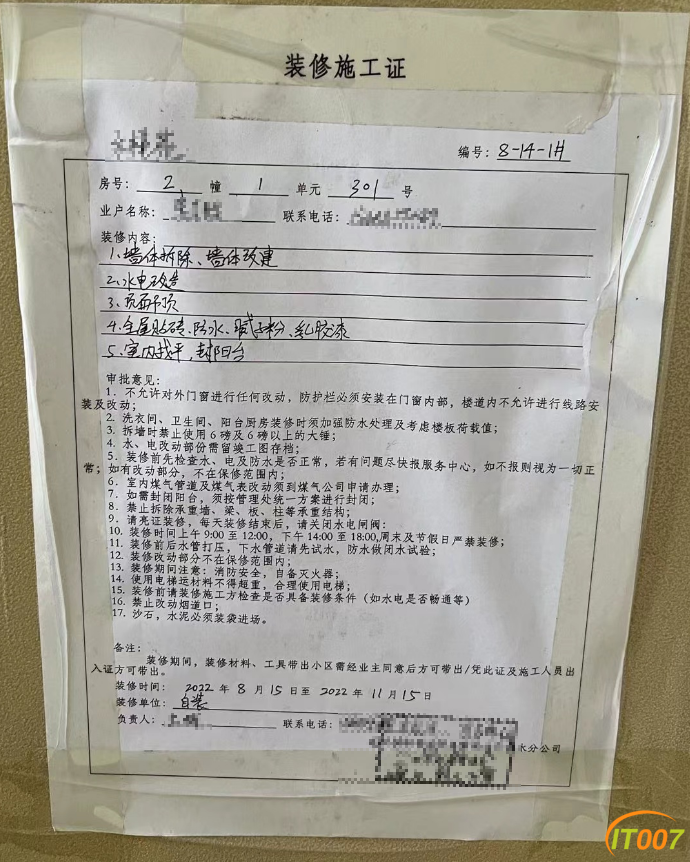 装修施工证
编号：8-14-1#
房号：2 幢 1 单元 301 号
业户名称： 联系电话：
装修内容：
1、墙体拆除、墙体改建
2、水电改造
3、顶面吊顶
4、全屋贴砖、防水、腻子粉、乳胶漆
5、室内找平，封阳台
审批意见：
1. 不允许对外门窗进行任何改动，防护栏必须安装在门窗内部，楼道内不允许进行线路安
装及改动；
2. 洗衣间、卫生间、阳台厨房装修时须加强防水处理及考虑楼板荷载值；
3. 拆墙时禁止使用6磅及6磅以上的大锤；
4. 水、电改动部份需留竣工图存档；
5. 装修前先检查水、电及防水是否正常，若有问题尽快报服务中心，如不报则视为一切正
常；如有改动部分，不在保修范围内；
6. 室内煤气管道及煤气表改动须到煤气公司申请办理；
7. 如需封闭阳台，须按管理处统一方案进行封闭；
8. 禁止拆除承重墙、梁、板、柱等承重结构；
9. 请亮证装修，每天装修结束后，请关闭水电闸阀：
10. 装修时间上午9:00至12:00，下午14:00至18:00,周末及节假日严禁装修；
11. 装修前后水管打压，下水管道请先试水，防水做闭水试验；
12. 装修改动部分不在保修范围内；
13. 装修期间注意：消防安全，自备灭火器；
14. 使用电梯运材料不得超重，合理使用电梯；
15. 装修前请装修施工方检查是否具备装修条件（如水电是否畅通等）
16. 禁止改动烟道口；
17. 沙石，水泥必须装袋进场。
备注：
装修期间，装修材料、工具带出小区需经业主同意后方可带出/凭此证及施工人员出
入证方可带出。
装修时间： 2022 年 8 月 15 日至 2022 年 11 月 15 日
装修单位：自装
负责人： 联系电话：
水分公司
IT007